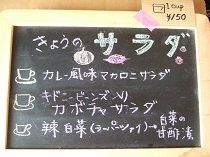 1 cup
¥150
きょうの サラダ
カレー風味マカロニサラダ
キドニービーンズ入り
カボチャサラダ
辣白菜(ラーパーツァイ)→白菜の
甘酢漬